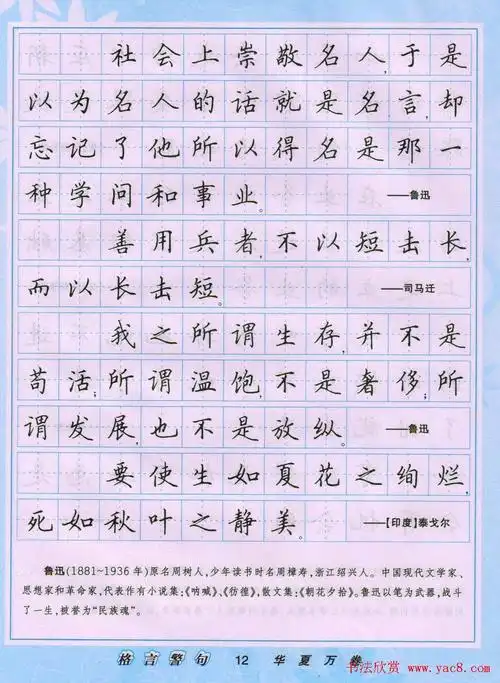 社会上崇敬名人,于是
以为名人的话就是名言,却
忘记了他所以得名是那一
种学问和事业。 ——鲁迅
善用兵者,不以短击长,
而以长击短。 ——司马迁
我之所谓生存,并不是
苟活;所谓温饱,不是奢侈;所
谓发展,也不是放纵。 ——鲁迅
要使生如夏花之绚烂,
死如秋叶之静美。 ——[印度]泰戈尔
鲁迅(1881~1936年)原名周树人,少年读书时名周樟寿,浙江绍兴人。中国现代文学家、
思想家和革命家,代表作有小说集:《呐喊》、《彷徨》,散文集:《朝花夕拾》。鲁迅以笔为武器,战斗
了一生,被誉为“民族魂”。
格言警句 12 华夏万卷
书法欣赏
www.yac8.com